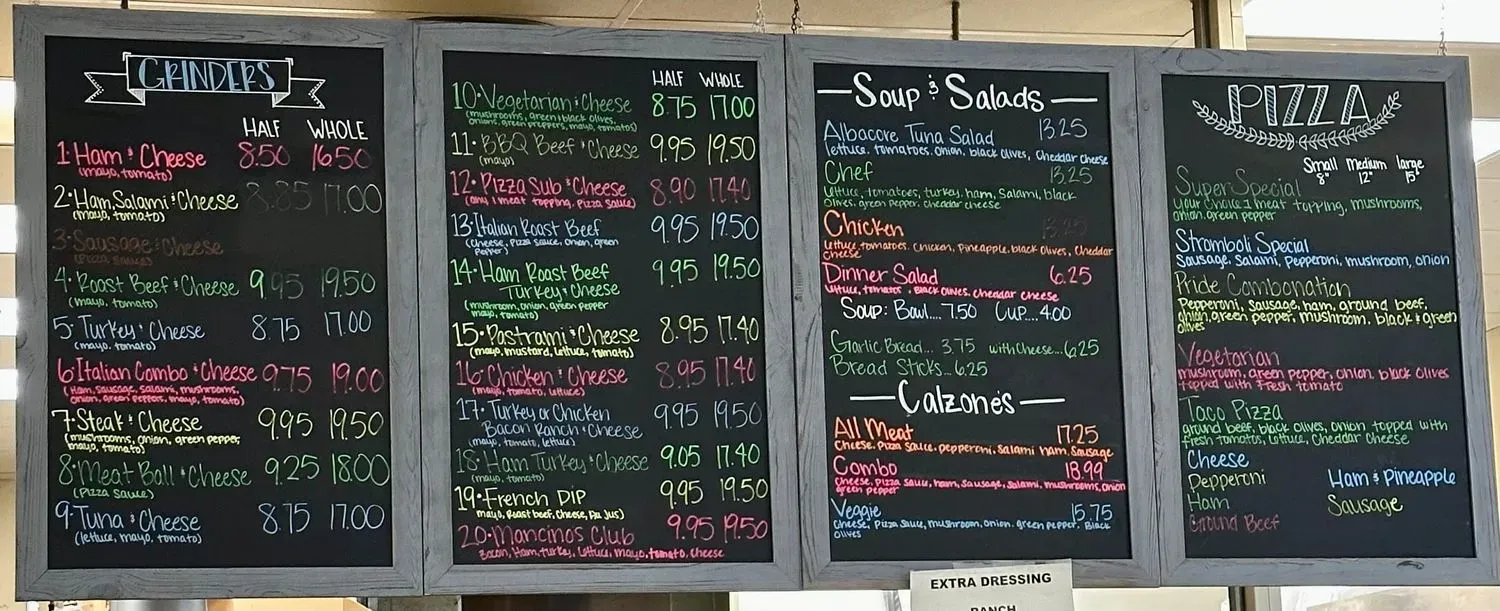 GRINDERS
HALF WHOLE
1. Ham & Cheese 8.50 16.50
(mayo, tomato)
2. Ham, Salami & Cheese 8.85 17.00
(mayo, tomato)
3. Sausage & Cheese
(pizza sauce)
4. Roast Beef & Cheese 9.95 19.50
(mayo, tomato)
5. Turkey & Cheese 8.75 17.00
(mayo, tomato)
6. Italian Combo & Cheese 9.75 19.00
(Ham, sausage, salami, mushrooms,
onion, green peppers, mayo, tomato)
7. Steak & Cheese 9.95 19.50
(mushrooms, onion, green pepper,
mayo, tomato)
8. Meat Ball & Cheese 9.25 18.00
(pizza sauce)
9. Tuna & Cheese 8.75 17.00
(lettuce, mayo, tomato)
HALF WHOLE
10. Vegetarian & Cheese 8.75 17.00
(mushrooms, green & black olives,
onions, green preppers, mayo, tomatos)
11. BBQ Beef & Cheese 9.95 19.50
(mayo)
12. Pizza Sub & Cheese 8.90 17.40
(any 1 meat topping, pizza sauce)
13. Italian Roast Beef 9.95 19.50
(cheese, pizza sauce, onion, green
pepper)
14. Ham Roast Beef 9.95 19.50
Turkey & Cheese
(mushroom, onion, green pepper
mayo, tomato)
15. Pastrami & Cheese 8.95 17.40
(mayo, mustard, lettuce, tomato)
16. Chicken & Cheese 8.95 17.40
(mayo, tomato, lettuce)
17. Turkey or Chicken 9.95 19.50
Bacon Ranch & Cheese
(mayo, tomato, lettuce)
18. Ham Turkey & Cheese 9.05 17.40
(mayo, tomato)
19. French Dip 9.95 19.50
mayo, Roast beef, Cheese, Au Jus)
20. Mancinos Club 9.95 19.50
Bacon, Ham, turkey, lettuce, mayo, tomato, cheese
Soup & Salads
Albacore Tuna Salad 13.25
lettuce, tomatoes, onion, black olives, Cheddar cheese
Chef 13.25
lettuce, tomatoes, turkey, ham, Salami, black
olives, green pepper, cheddar cheese
Chicken 13.25
lettuce, tomatoes, Chicken, Pineapple, black olives, Cheddar
Cheese
Dinner Salad 6.25
lettuce, tomatos, black olives, cheddar cheese
Soup: Bowl....7.50 Cup....4.00
Garlic Bread... 3.75 with cheese...6.25
Bread Sticks...6.25
Calzones
All Meat 17.25
Cheese, Pizza Sauce, pepperoni, salami ham, Sausage
Combo 18.99
Cheese, pizza sauce, ham, Sausage, salami, mushrooms, onion
green pepper
Veggie 15.75
Cheese, Pizza Sauce, mushroom, onion, green pepper, Black
olives
PIZZA
Small Medium large
8" 12" 15"
Super Special
Your choice 1 meat topping, mushrooms,
onion, green pepper
Stromboli Special
Sausage, Salami, Pepperoni, mushroom, onion
Pride Combonation
Pepperoni, sausage, ham, ground beef,
onion, green pepper, mushroom, black & green
olives
Vegetarian
mushroom, green pepper, onion, black olives
topped with fresh tomato
Taco Pizza
ground beef, black olives, onion topped with
fresh tomatos, lettuce, Cheddar Cheese
Cheese
Pepperoni Ham & Pineapple
Ham Sausage
Ground Beef
EXTRA DRESSING
RANCH